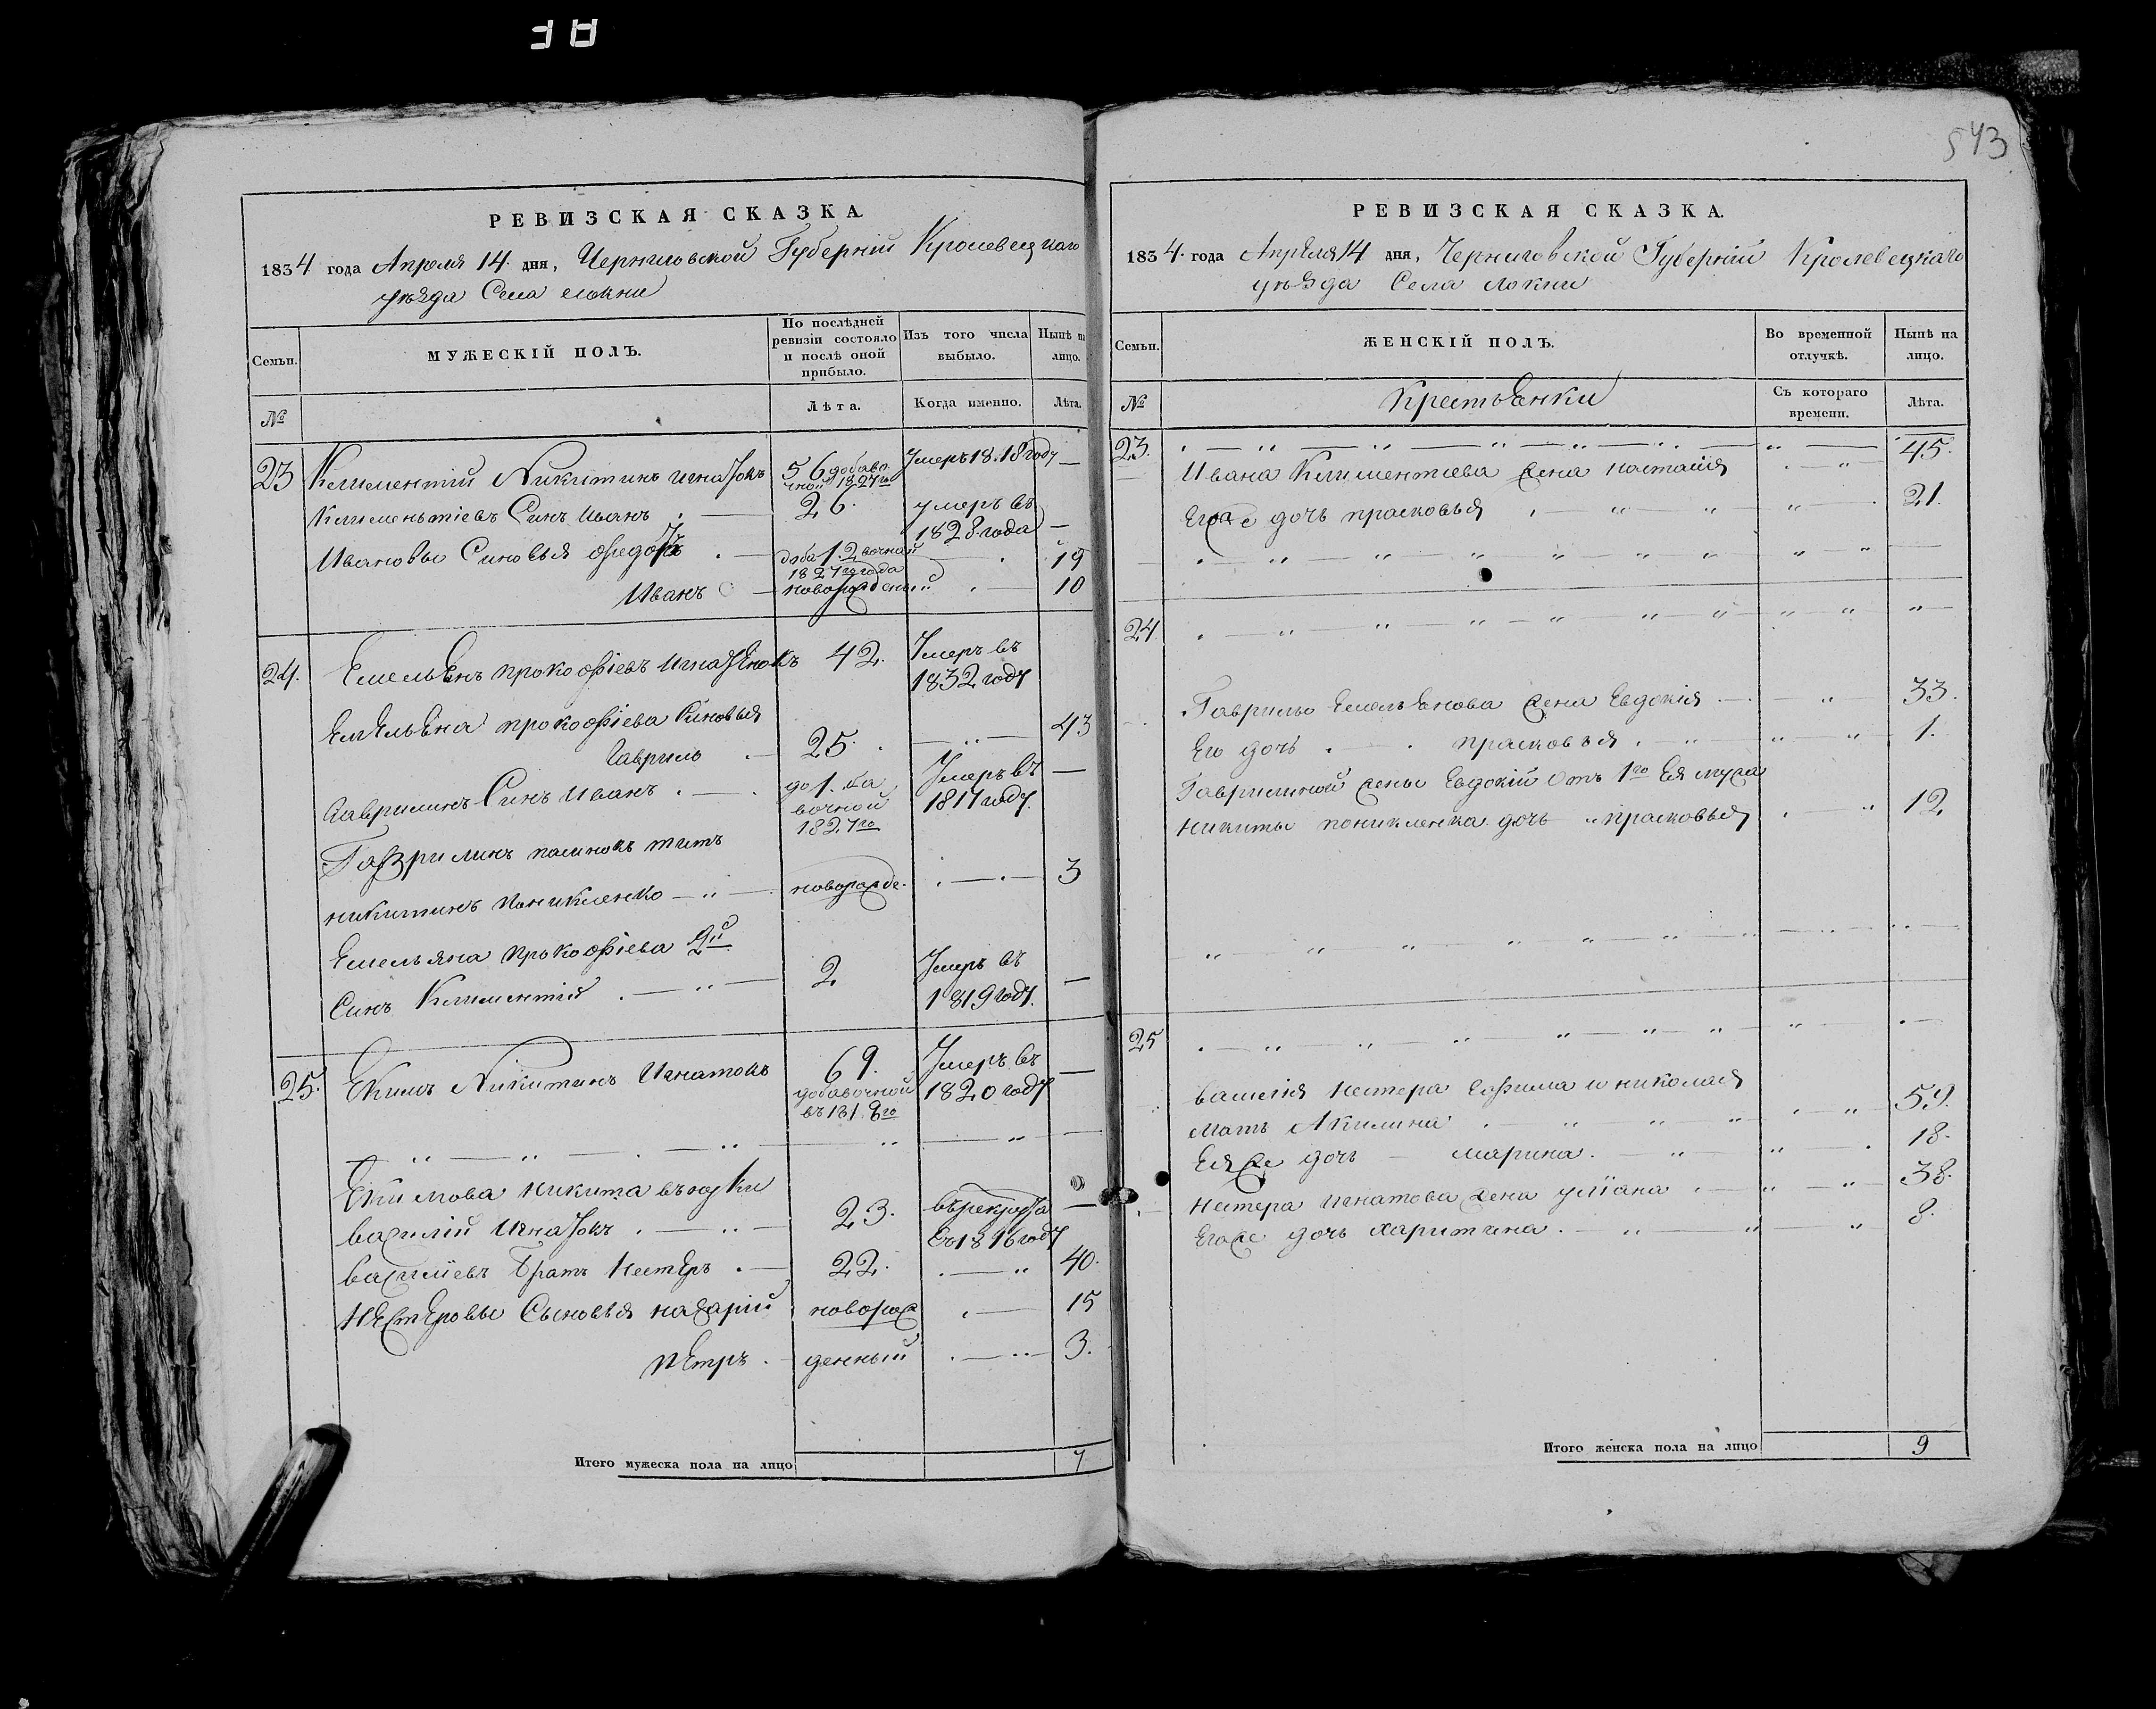 543
РЕВИЗСКАЯ СКАЗКА.
1834 года Апреля 14 дня, Черниговской Губерніи Кролевецкаго
уѣзда Села Локни
Семьи.
МУЖЕСКІЙ ПОЛЪ.
По послѣдней ревизіи состояло и послѣ оной прибыло.
Изъ того числа выбыло.
Нынѣ на лицо.
№
Лѣта.
Когда именно.
Лѣта.
23 Климентій Никитинъ Игнатокъ 56 добавочной 1827го Умеръ 18.18 году —
Климентіевъ Синъ Иванъ . — 26. умеръ въ 1828 года —
Ивановы Синовья Федотъ . — доба 1.2 вочной 1827го года . 19
Иванъ — новорожденый . — 10
24. Емельѣнъ прокофіевъ Игнатѣнокъ 42. Умеръ въ 1832 году
Емѣльѣна прокофіева Синовья
Гаврило . — 25. — „ — 43
Гаврилинъ Синъ Иванъ . — . до 1. ба вочной 1827го Умеръ въ 1817 году. —
Гаврилинъ пасинокъ титъ
никитинъ Поникленко — „ — новорожде. . — . — 3
Емельяна прокофіева 2й
Синъ Климентій . — „ — 2 Умеръ въ 1819 году. —
25. Екимъ Никитинъ Игнатокъ 69. добавочной въ 181.8го Умеръ въ 1820 году —
Екимова Никита внуки
василій Игнатокъ . — „ — 23. въ рекрута въ 1816 году —
василіевъ Братъ Нестѣръ . — 22. . — „ 40.
Нѣстѣровы Сыновья назарій новорож . — 15
пѣтръ . — денный . — „ — 3.
Итого мужеска пола на лицо 7
РЕВИЗСКАЯ СКАЗКА.
1834. года Апрѣля 14 дня, Черниговской Губерніи Кролевецкаго
уѣзда Села Локни
Семьи.
ЖЕНСКІЙ ПОЛЪ.
Во временной отлучкѣ.
Нынѣ на лицо.
№
Крестьѣнки
Съ котораго времени.
Лѣта.
23.
Ивана Климентіева жена настасія . — „ 45.
Егоже дочь прасковья . — „ — „ — „ — . 21.
24
Гаврилы Емельѣнова жена Евдокія — . — „ 33.
Его дочь . — . прасковья . — „ — „ — „ 1.
Гаврилиной жены Евдокіи отъ 1го Ея мужа
никиты поникленка дочь „ прасковья . — „ 12
25
василія нестера Ефима и николая
Мать Акилина . — „ — „ — „ . — „ 59.
Ея же дочь — марина. — „ — „ — . 18.
Нестера игнатова жена уліана . — „ — „ 38.
Егоже дочь харитина. — „ — „ — „ 8.
Итого женска пола на лицо 9